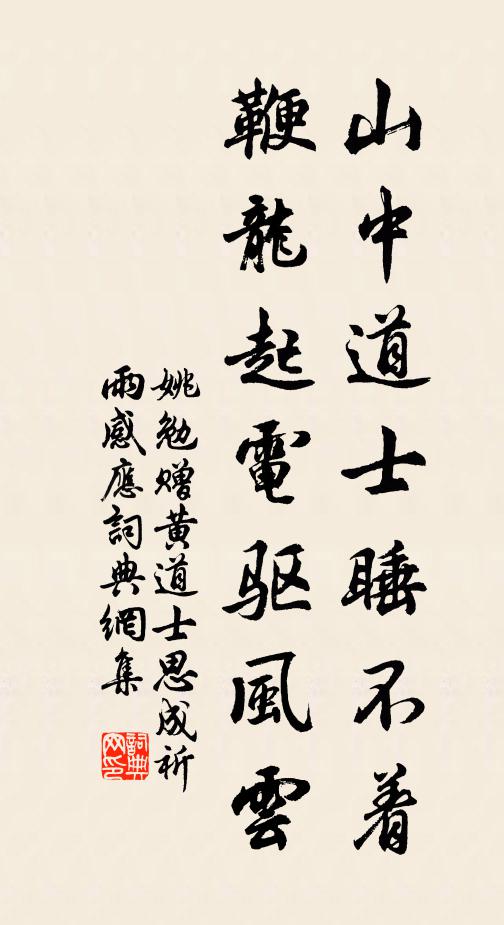 山中道士睡不着
鞭龍起電驱風雲
姚勉赠黄道士思成祈
雨感應詞典網集
詞典
网印